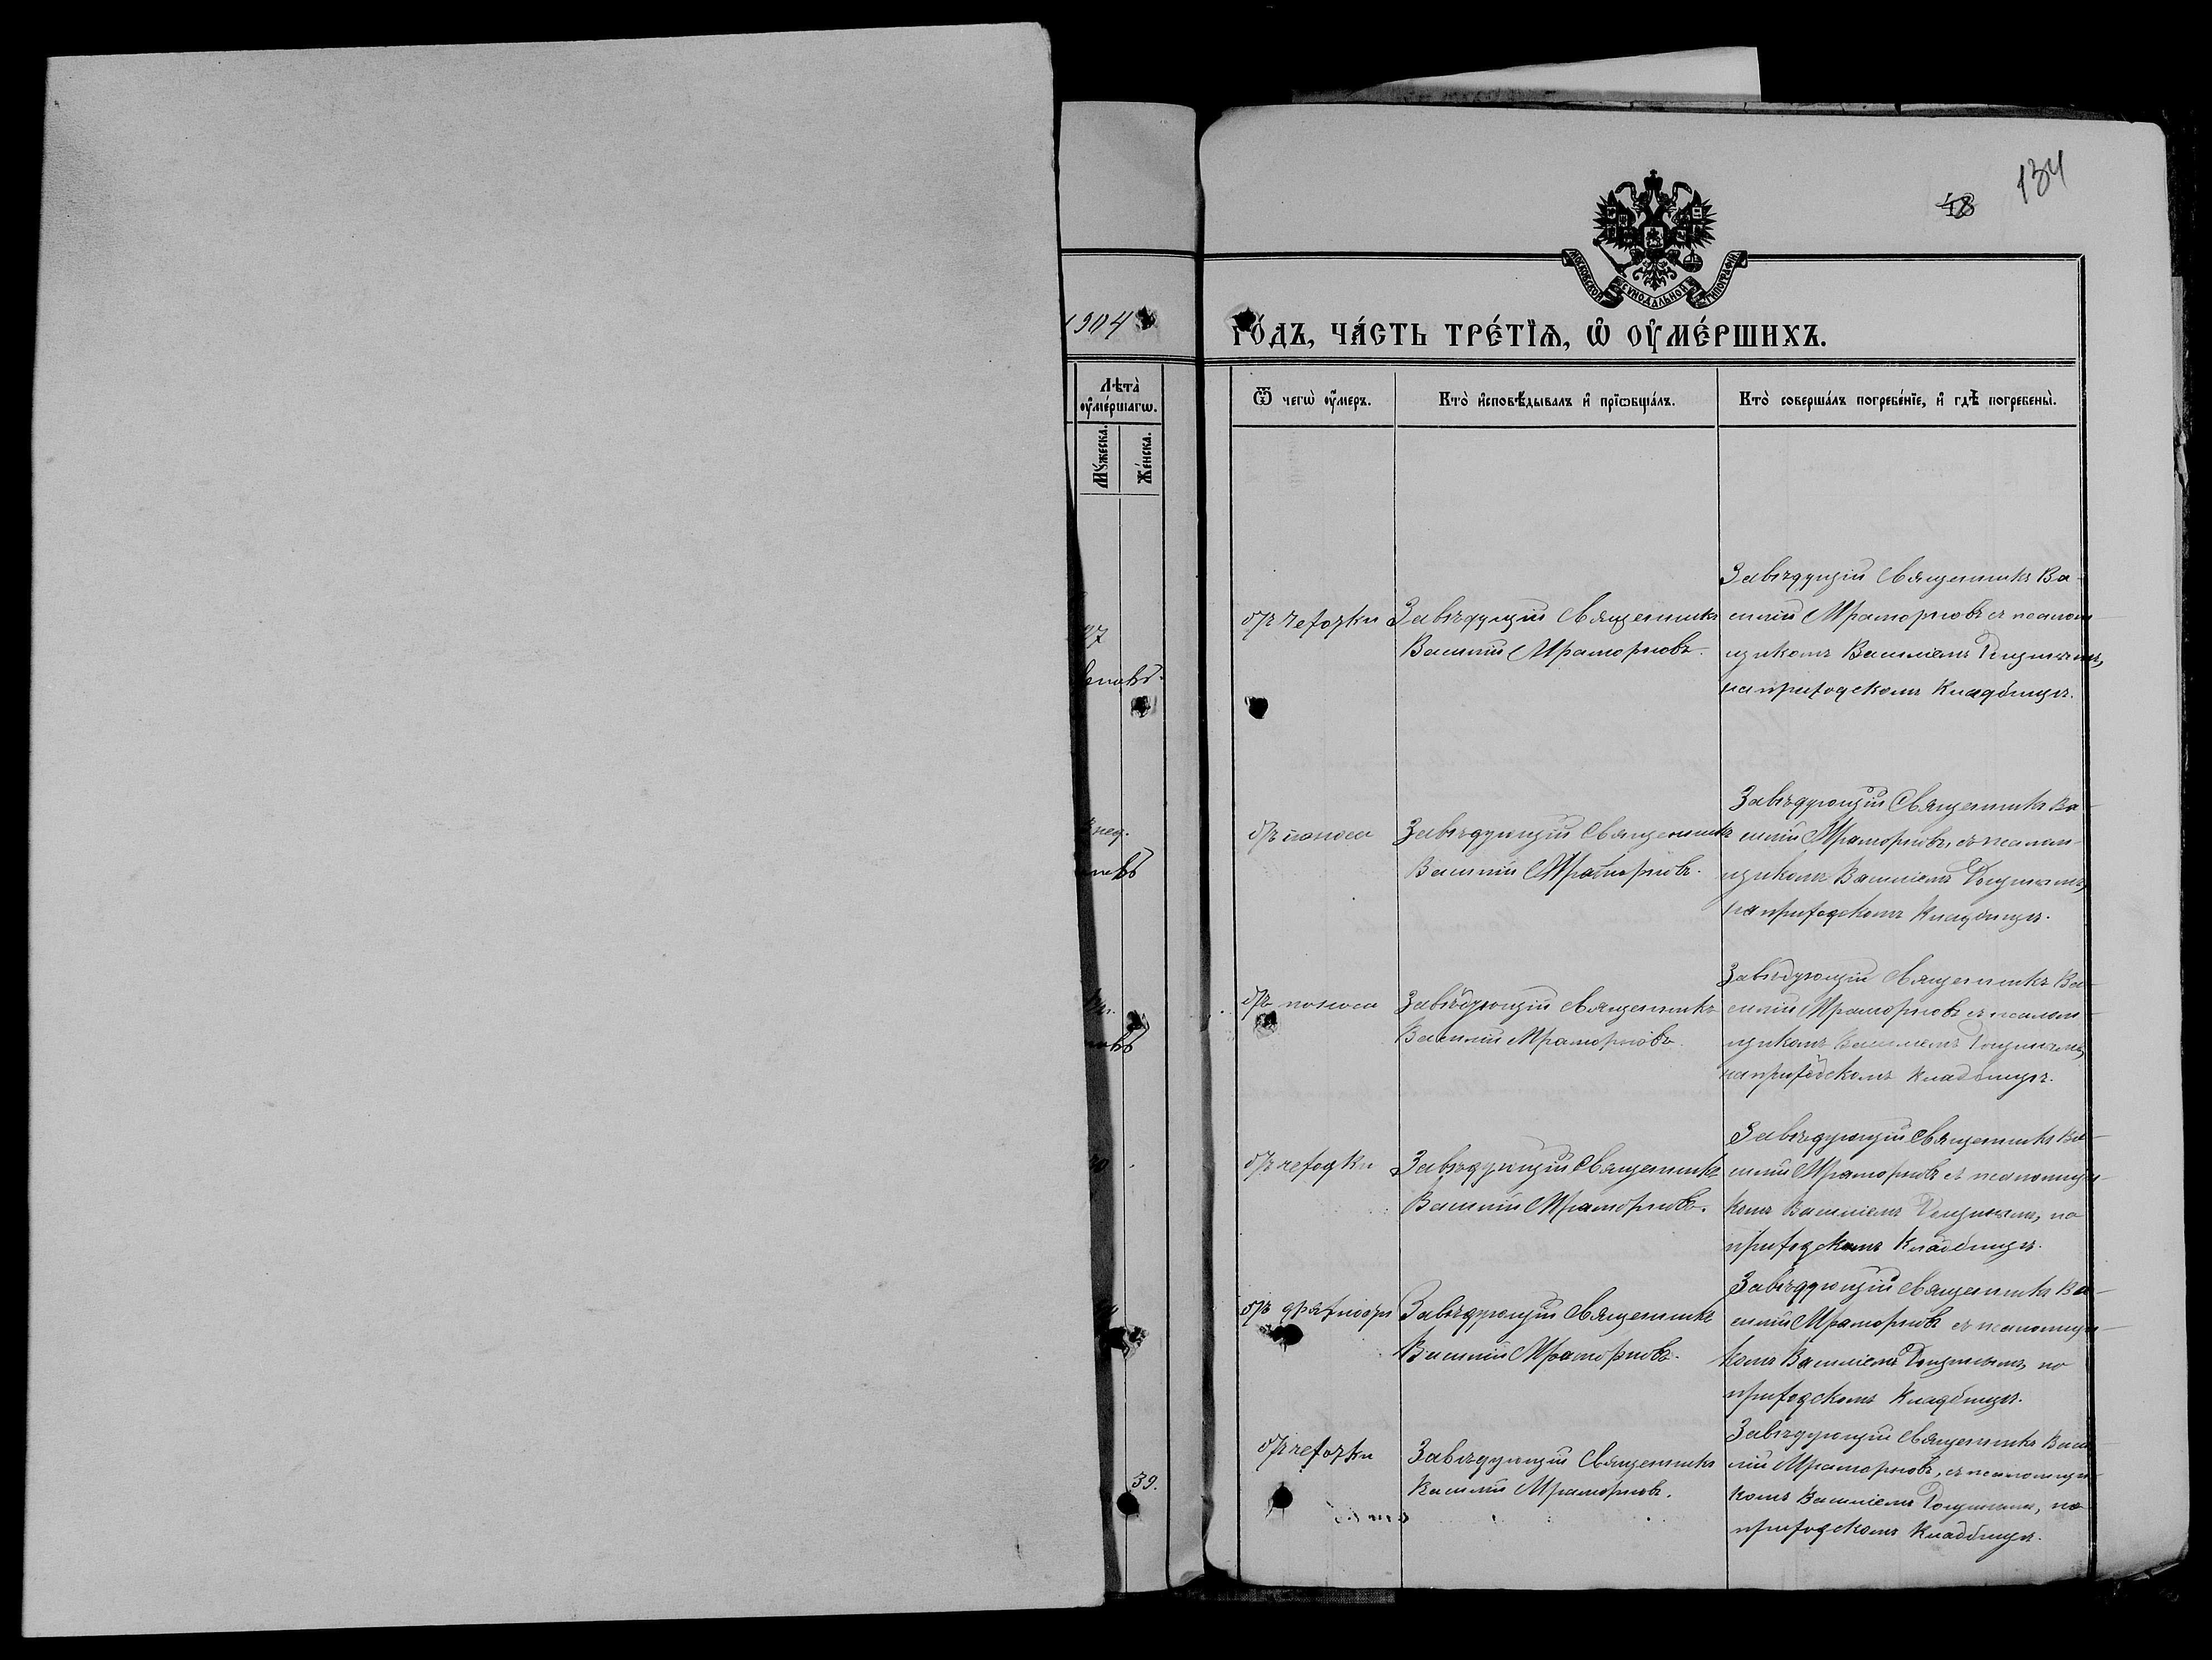 48
134
МОСКОВСКОЙ СѴНОДАЛЬНОЙ ТИПОГРАФІИ
1904
го́дъ, ча́сть тре́тїѧ, ѡ҆ ᲂу҆ме́ршихъ.
Лѣта̀
ᲂу҆ме́ршагѡ.
Мꙋ́жеска.
Же́нска.
Ѿ чегѡ̀ ᲂу҆́меръ.
Кто̀ и҆сповѣ́дывалъ и҆ прїѡбща́лъ.
Кто̀ соверша́лъ погребе́нїе, и҆ гдѣ̀ погребены̀.
отъ чехотки
Завѣдущій Священникъ
Василій Мраморновъ.
Завѣдущій Священникъ Ва-
силій Мраморновъ съ псалом-
щикомъ Василіемъ
на приходскомъ кладбищѣ.
отъ поноса
Завѣдующій Священникъ
Василій Мраморновъ.
Завѣдующій Священникъ Ва-
силій Мраморновъ, съ псалом-
щикомъ Василіемъ
на приходскомъ кладбищѣ.
отъ поноса
Завѣдующій Священникъ
Василій Мраморновъ.
Завѣдующій Священникъ Ва-
силій Мраморновъ съ псалом-
щикомъ Василіемъ
на приходскомъ кладбищѣ.
отъ чеходки
Завѣдующій Священникъ
Василій Мраморновъ.
Завѣдующій Священникъ Ва-
силій Мраморновъ съ псаломщи-
комъ Василіемъ на
приходскомъ кладбищѣ.
отъ дряхлости
Завѣдующій Священникъ
Василій Мраморновъ.
Завѣдующій Священникъ Ва-
силій Мраморновъ съ псаломщи-
комъ Василіемъ на
приходскомъ кладбищѣ.
39.
отъ чехотки
Завѣдующій Священникъ
Василій Мраморновъ.
Завѣдующій Священникъ Васи-
лій Мраморновъ, съ псаломщи-
комъ Василіемъ на
приходскомъ кладбищѣ.